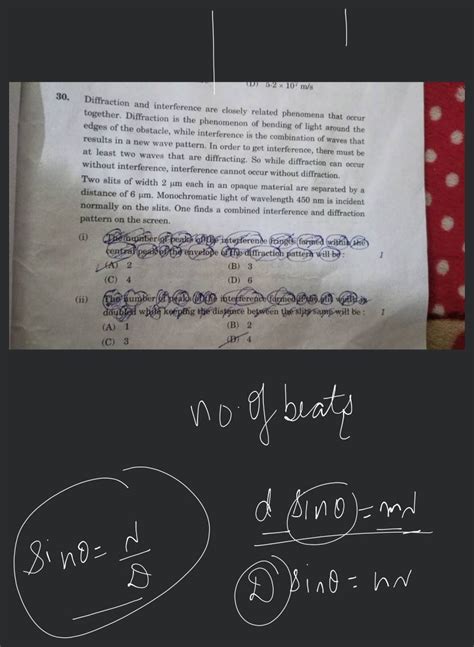 (D) 5·2 × 10⁷ m/s
30. Diffraction and interference are closely related phenomena that occur
together. Diffraction is the phenomenon of bending of light around the
edges of the obstacle, while interference is the combination of waves that
results in a new wave pattern. In order to get interference, there must be
at least two waves that are diffracting. So while diffraction can occur
without interference, interference cannot occur without diffraction.
Two slits of width 2 μm each in an opaque material are separated by a
distance of 6 μm. Monochromatic light of wavelength 450 nm is incident
normally on the slits. One finds a combined interference and diffraction
pattern on the screen.
(i) The number of peaks of the interference fringes formed within the 1
central peak of the envelope of the diffraction pattern will be :
(A) 2 (B) 3
(C) 4 (D) 6
(ii) The number of peaks of the interference formed if the slit width is 1
doubled while keeping the distance between the slits same will be :
(A) 1 (B) 2
(C) 3 (D) 4
no. of beats
d sinθ = mλ
sinθ = λ/D
D sinθ = nλ